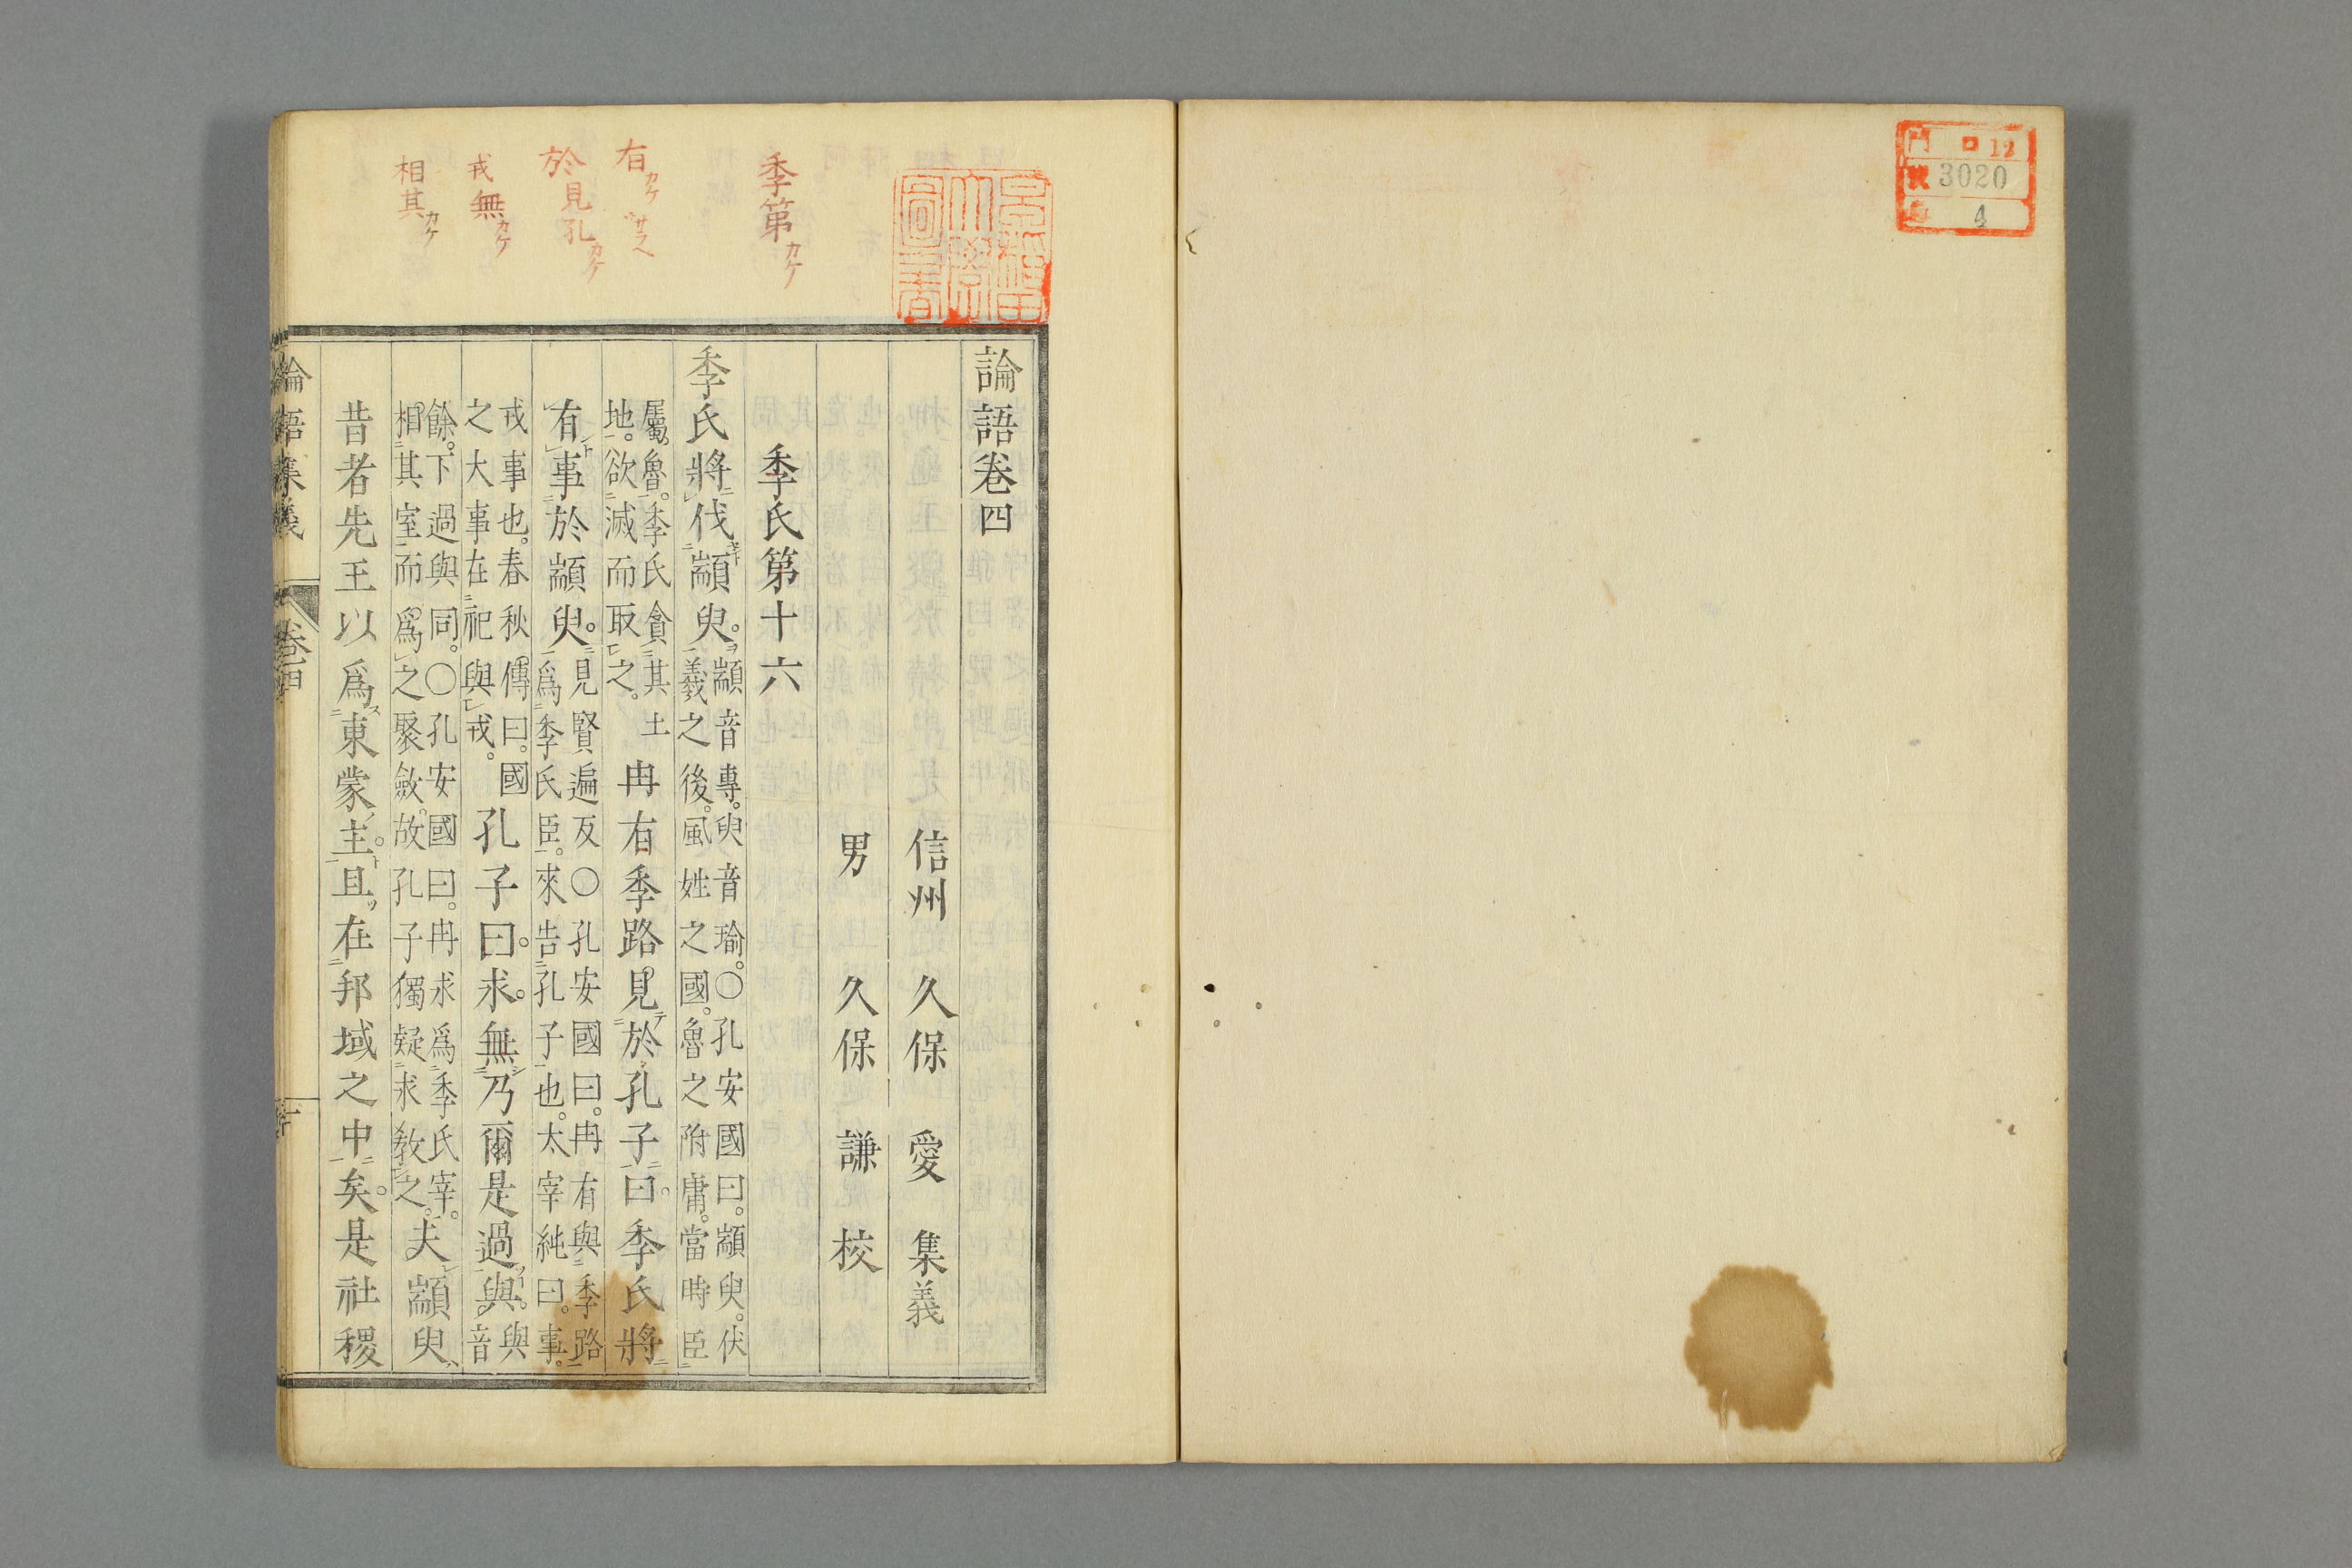 門 ロ 12
號 3020
巻 4
早稲田大學圖書
季第カケ
有カケ サラヘ
於見孔カケ
戎無カケ
相其カケ
論語卷四
信州 久保 愛 集義
男 久保 謙 校
季氏第十六
季氏將伐顓臾。顓音專。臾音瑜。○孔安國曰。顓臾。伏
羲之後。風姓之國。魯之附庸。當時臣
屬魯。季氏貪其土
地。欲滅而取之。冉有季路見於孔子曰。季氏將
有事於顓臾。見賢遍反○孔安國曰。冉有與季路
爲季氏臣。來告孔子也。太宰純曰。事。
戎事也。春秋傳曰。國
之大事在祀與戎。孔子曰。求。無乃爾是過與。與音
餘。下過與同。○孔安國曰。冉求爲季氏宰。
相其室而爲之聚斂。故孔子獨疑求敎之。夫顓臾
昔者先王以爲東蒙主。且在邦域之中矣。是社稷
論語集義 卷四